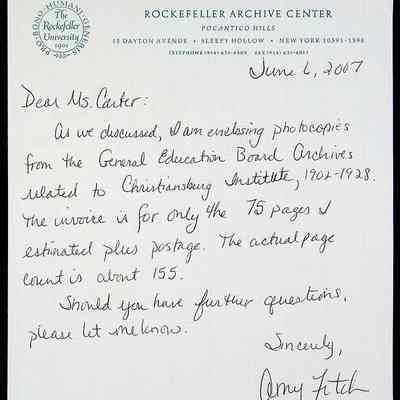 PRO·BONO·HUMANI·GENERIS
The
Rockefeller
University
1901
ROCKEFELLER ARCHIVE CENTER
POCANTICO HILLS
15 DAYTON AVENUE • SLEEPY HOLLOW • NEW YORK 10591-1598
TELEPHONE (914) 631-4505 FAX (914) 631-6017
June 6, 2007
Dear Ms. Carter:
As we discussed, I am enclosing photocopies
from the General Education Board Archives
related to Christiansburg Institute, 1902-1928.
The invoice is for only the 75 pages I
estimated plus postage. The actual page
count is about 155.
Should you have further questions,
please let me know.
Sincerely,
Amy Fitch